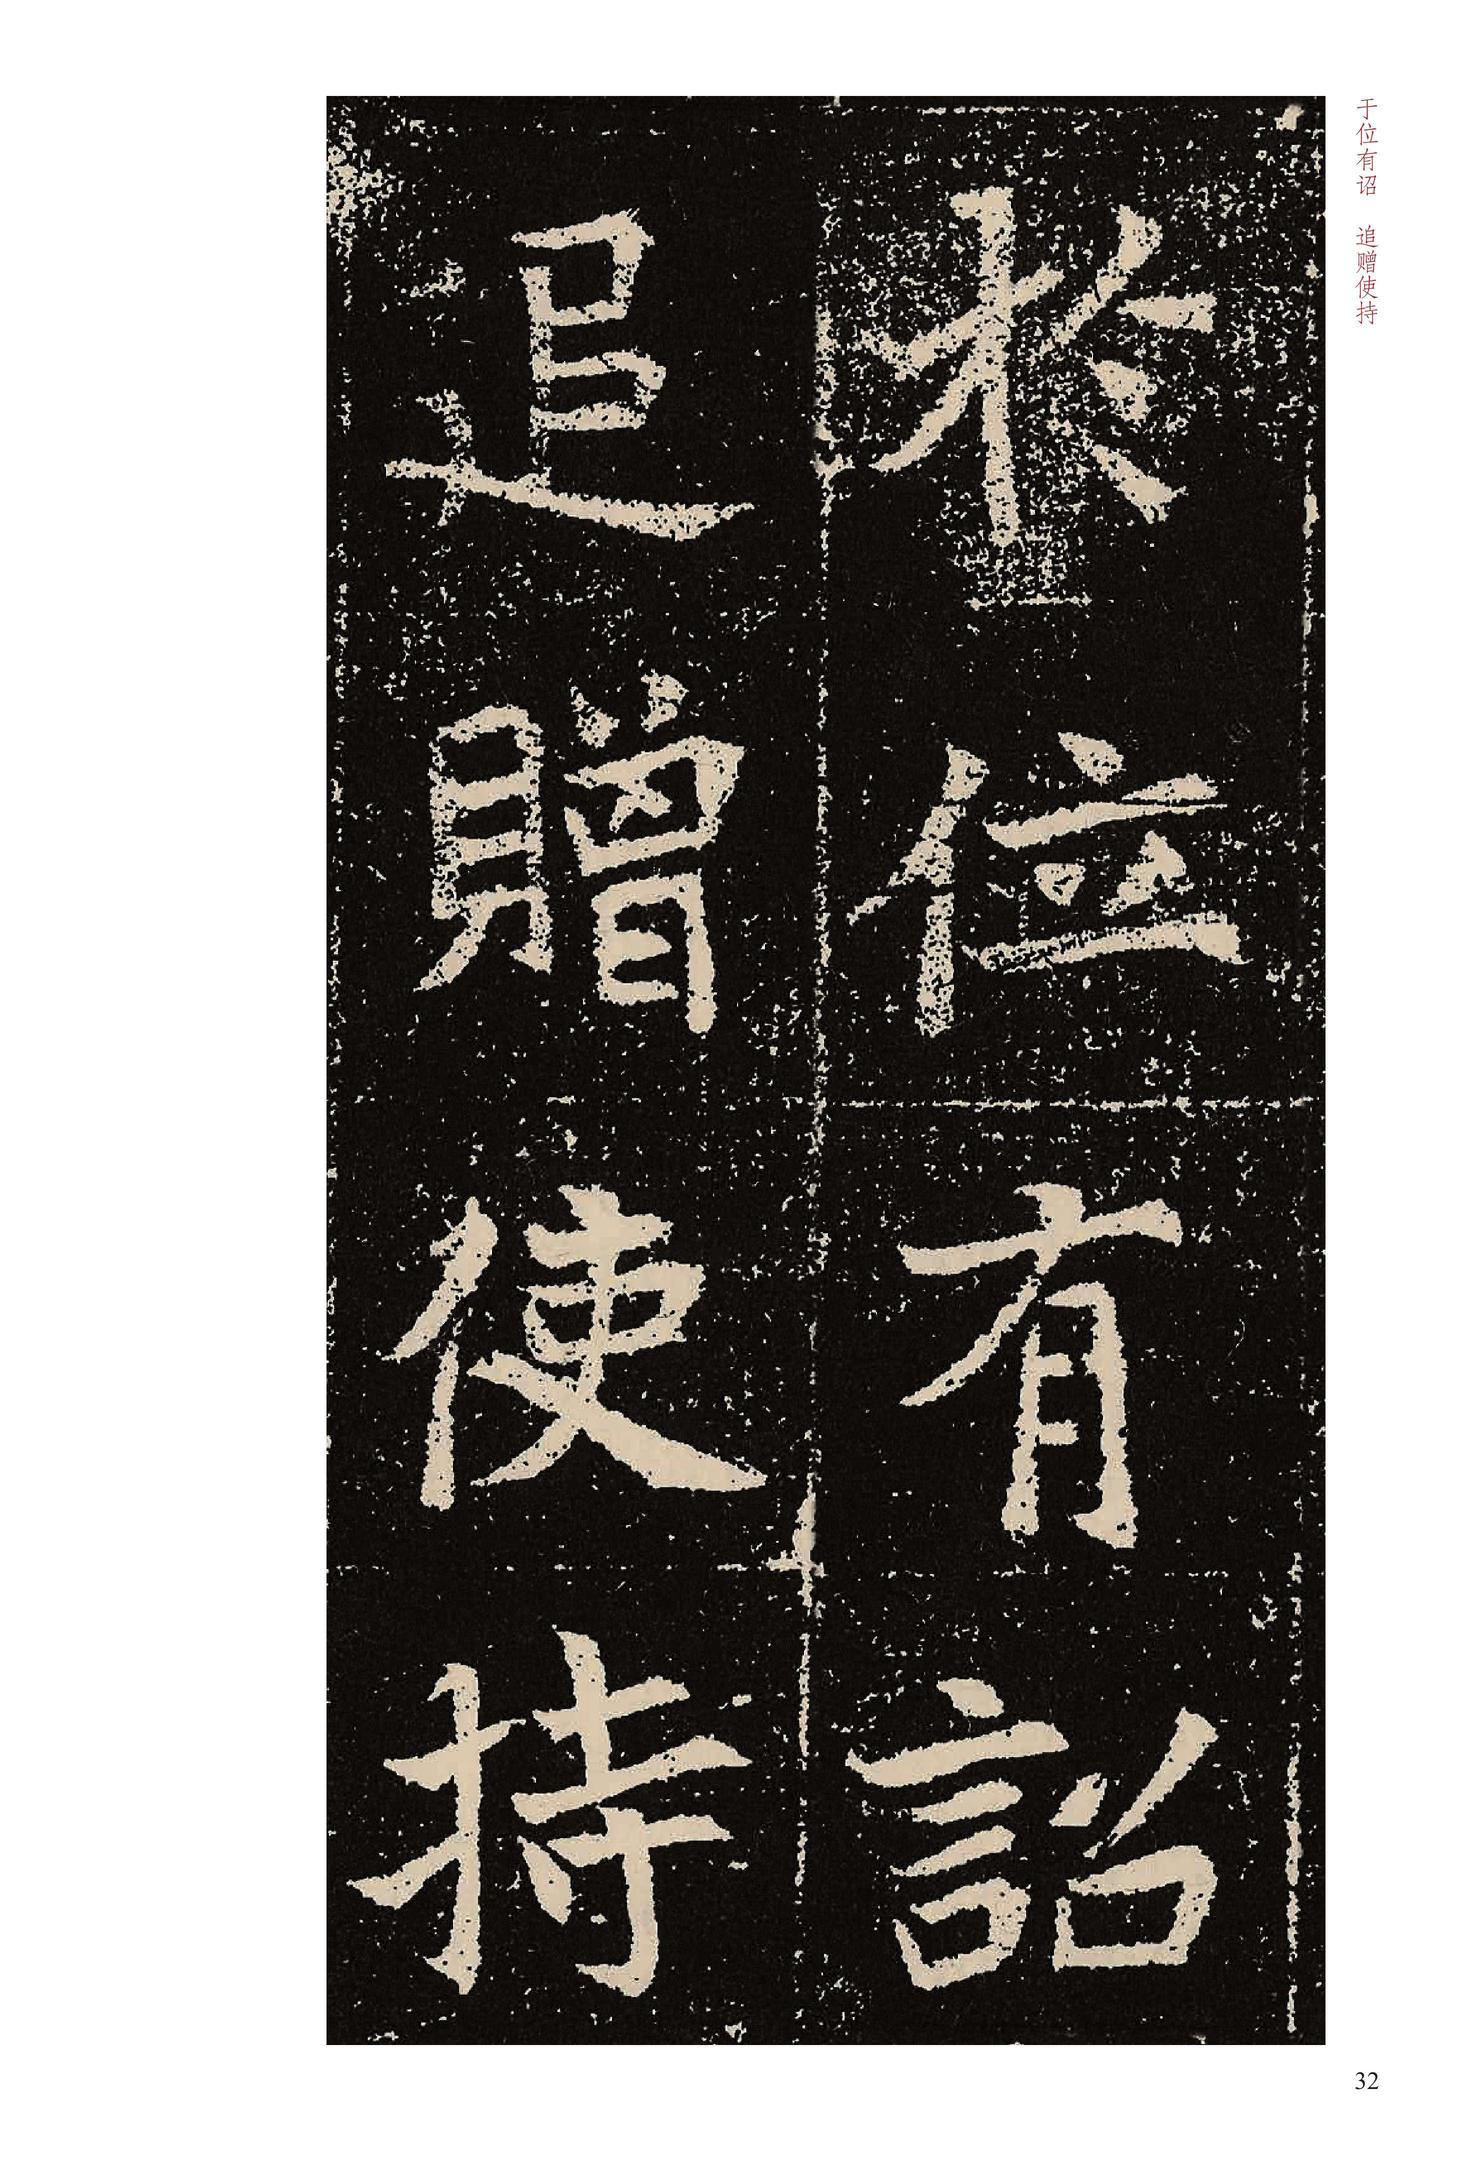 於位有詔
追贈使持
于位有诏　追赠使持
32